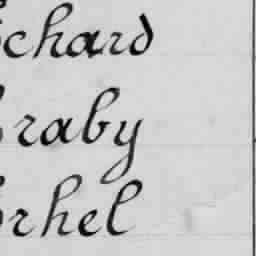 chard
raby
rhel